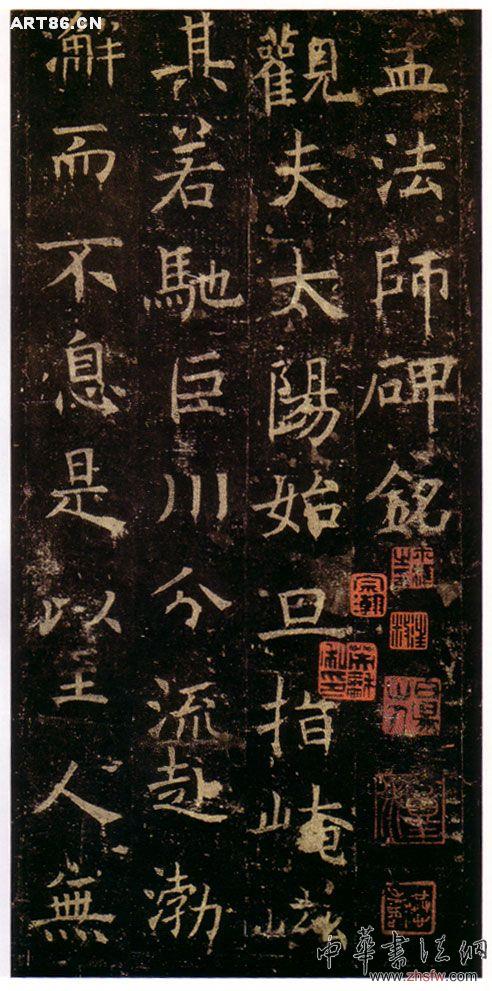 ART86.CN
孟法師碑銘
觀夫太陽始旦指崦嵫
其若馳巨川分流赴渤
澥而不息是以至人無
宗瀚
中華書法網
www.zhsfw.com